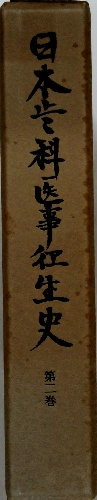 日本歯科医事衛生史
第二巻